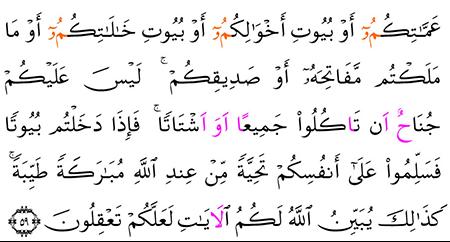 عَمَّـٰتِكُمُۥٓ أَوْ بُيُوتِ أَخْوَٰلِكُمُۥٓ أَوْ بُيُوتِ خَـٰلَـٰتِكُمُۥٓ أَوْ مَا
مَلَكْتُم مَّفَاتِحَهُۥٓ أَوْ صَدِيقِكُمْ ۚ لَيْسَ عَلَيْكُمْ
جُنَاحٌ اَن تَاكُلُوا۟ جَمِيعًا اَوَ اَشْتَاتًا ۚ فَإِذَا دَخَلْتُم بُيُوتًا
فَسَلِّمُوا۟ عَلَىٰٓ أَنفُسِكُمْ تَحِيَّةً مِّنْ عِندِ اللَّهِ مُبَـٰرَكَةً طَيِّبَةً ۚ
كَذَٰلِكَ يُبَيِّنُ اللَّهُ لَكُمُ اَلَايَـٰتِ لَعَلَّكُمْ تَعْقِلُونَ ۝٥٩